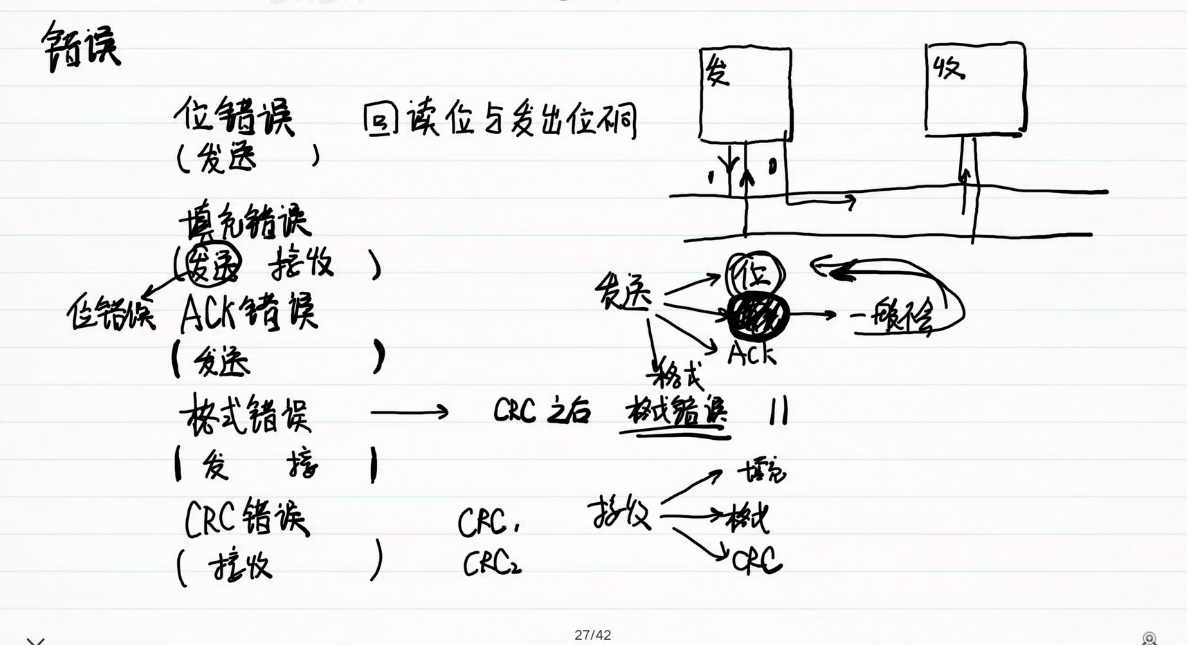 错误
发 收
位错误 回读位与发出位不同
(发送 )
填充错误
(发送 接收 )
位错误 ACK错误
(发送 )
格式错误 → CRC之后 格式错误
(发 接 )
CRC错误 CRC1
(接收 ) CRC2
发送 位
一般不会
ACK
格式
接收 填充
格式
CRC
27/42